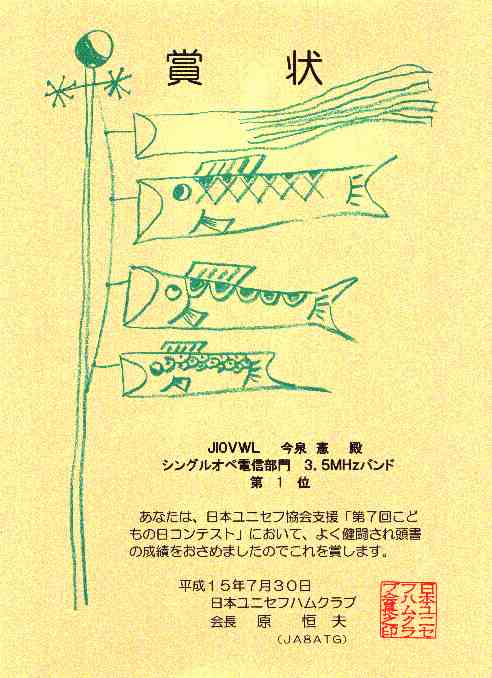 賞 状
JI0VWL 今泉 憲 殿
シングルオペ電信部門 3.5MHzバンド
第 1 位
あなたは、日本ユニセフ協会支援「第7回こど
もの日コンテスト」において、よく健闘され頭書
の成績をおさめましたのでこれを賞します。
平成15年7月30日
日本ユニセフハムクラブ
会長 原 恒 夫
(JA8ATG)
日本ユニセ
フハムクラ
ブ会長之印